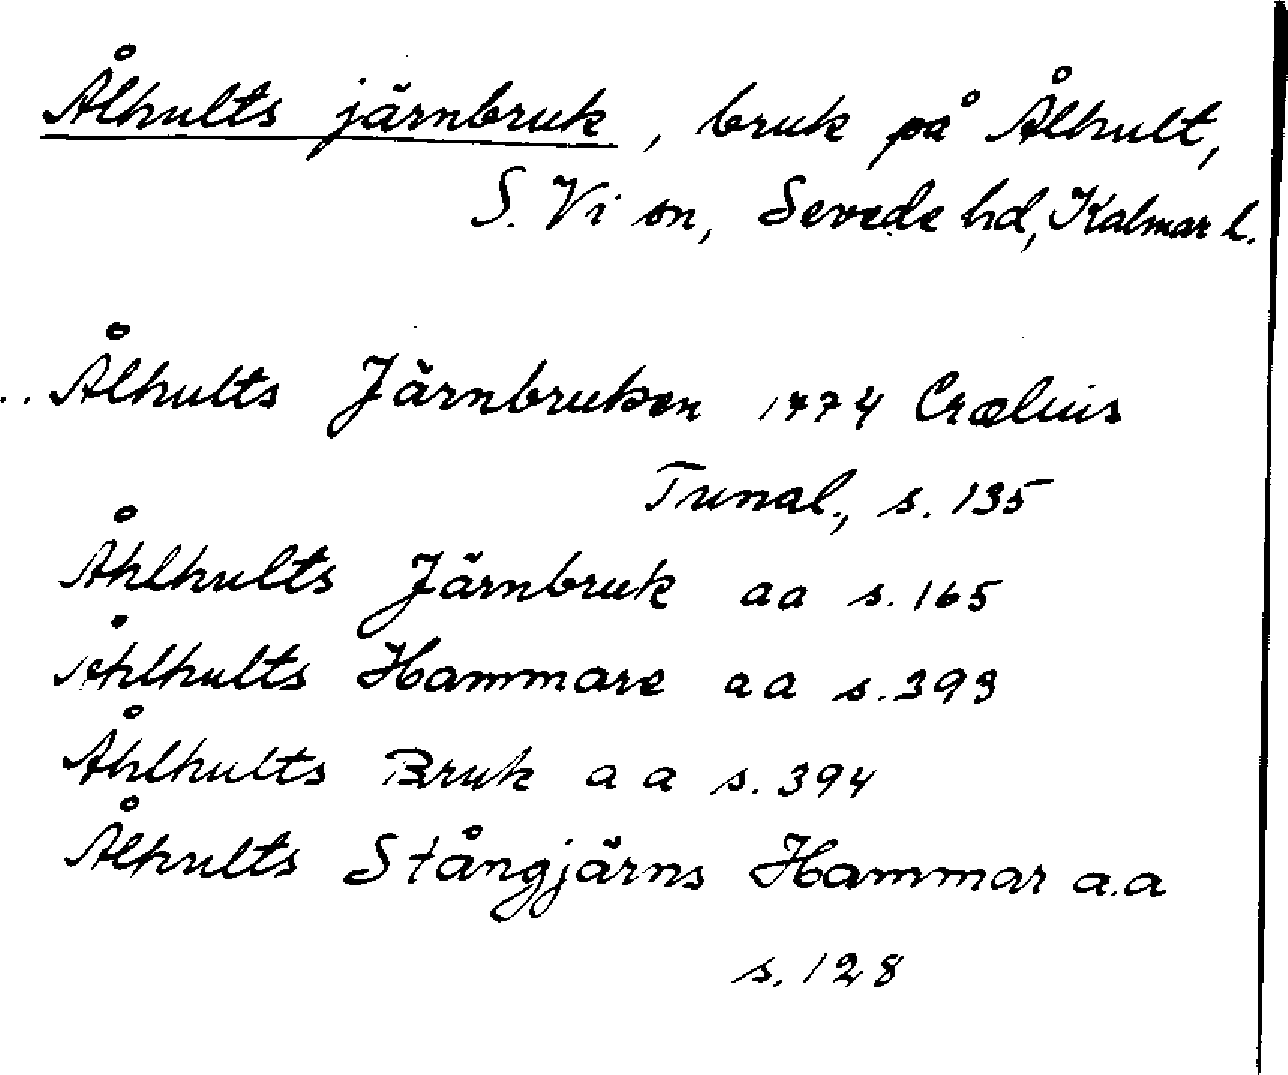 Ålhults järnbruk, bruk på Ålhult,
S. Vi sn, Sevede hd, Kalmar l.
.. Ålhults Järnbruken 1774 Crælius
Tunal., s. 135
Åhlhults Järnbruk aa s. 165
Åhlhults Hammare aa s. 393
Åhlhults Bruk aa s. 394
Ålhults Stångjärns Hammar a.a
s. 128